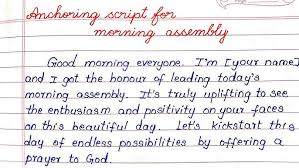 Anchoring script for
morning assembly
Good morning everyone. I'm [your name]
and I got the honour of leading today's
morning assembly. It's truly uplifting to see
the enthusiasm and positivity on your faces
on this beautiful day. Let's kickstart this
day of endless possibilities by offering a
prayer to God.